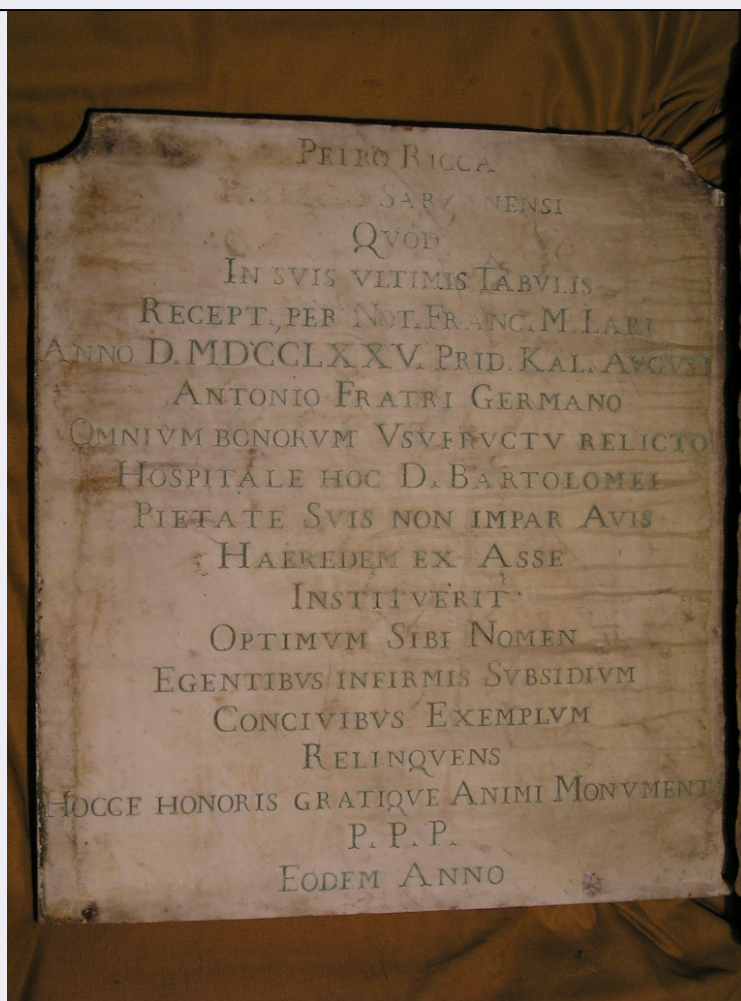 PETRO RICCA
SARZANENSI
QVOD
IN SVIS VLTIMIS TABVLIS
RECEPT. PER NOT. FRANC. M. LARI
ANNO D. MDCCLXXV. PRID. KAL. AVGVST
ANTONIO FRATRI GERMANO
OMNIVM BONORVM VSVFRVCTV RELICTO
HOSPITALE HOC D. BARTOLOMEI
PIETATE SVIS NON IMPAR AVIS
HAEREDEM EX ASSE
INSTITVERIT
OPTIMVM SIBI NOMEN
EGENTIBVS INFIRMIS SVBSIDIVM
CONCIVIBVS EXEMPLVM
RELINQVENS
HOCCE HONORIS GRATIQVE ANIMI MONVMENT
P. P. P.
EODEM ANNO